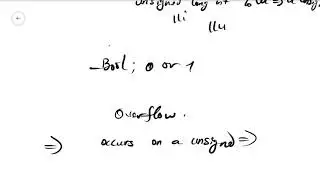 unsigned long int
lli
llu
_Bool; 0 or 1
Overflow.
⇒ occurs on a unsigned ⇒